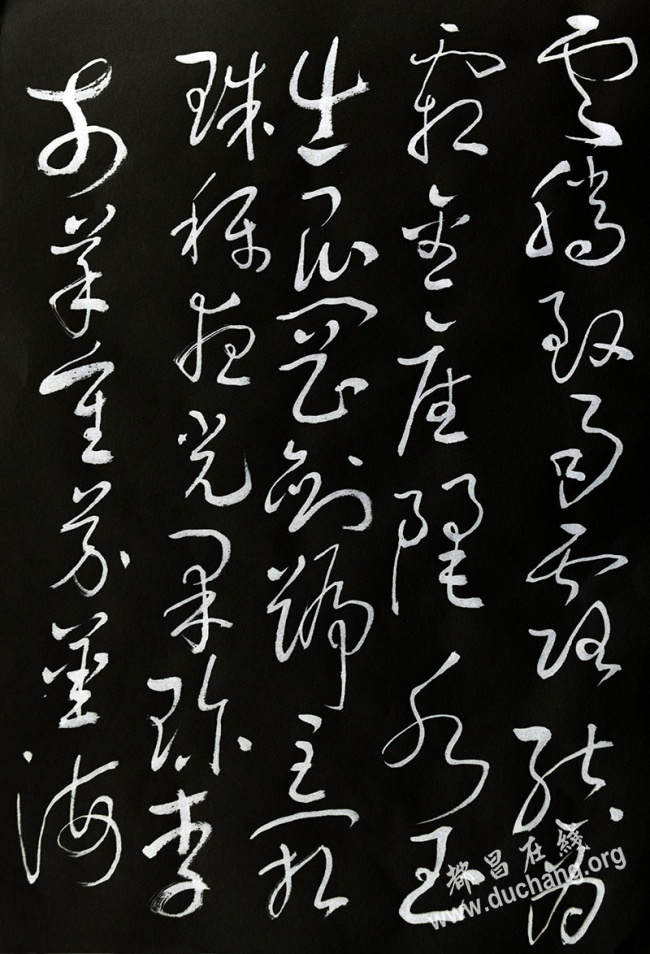 雲騰致雨露結為
霜金生麗水玉
出崑岡劍號巨闕
珠稱夜光果珍李
柰菜重芥薑海
都昌在綫
www.duchang.org